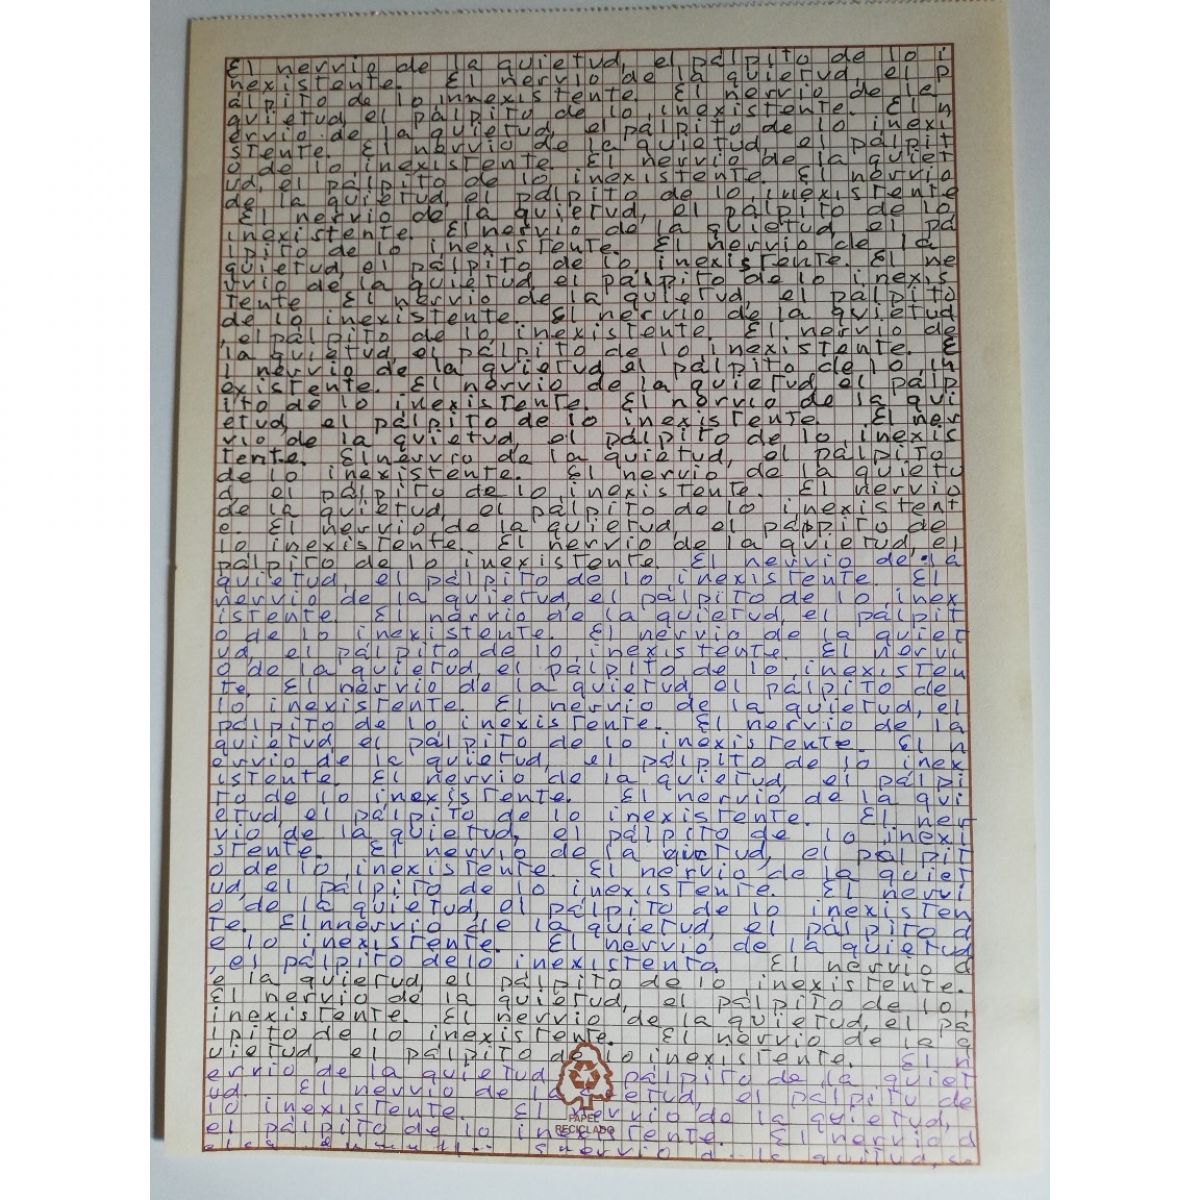 El nervio de la quietud, el pálpito de lo i
nexistente. El nervio de la quietud, el p
álpito de lo innexistente. El nervio de la
quietud, el pálpito de lo inexistente. El n
ervio de la quietud, el pálpito de lo inexi
stente. El nervio de la quietud, el pálpit
o de lo inexistente. El nervio de la quiet
ud, el pálpito de lo inexistente. El nervio
de la quietud, el pálpito de lo inexistente
El nervio de la quietud, el pálpito de lo
inexistente. El nervio de la quietud, el pá
lpito de lo inexistente. El nervio de la
quietud, el pálpito de lo inexistente. El ne
rvio de la quietud, el pálpito de lo inexis
tente El nervio de la quietud, el pálpito
de lo inexistente. El nervio de la quietud
, el pálpito de lo inexistente. El nervio de
la quietud, el pálpito de lo inexistente. E
l nervio de la quietud, el pálpito de lo in
existente. El nervio de la quietud, el pálp
ito de lo inexistente. El nervio de la qui
etud, el pálpito de lo inexistente. El ner
vio de la quietud, el pálpito de lo inexis
tente. El nervio de la quietud, el pálpito
de lo inexistente. El nervio de la quietu
d, el pálpito de lo inexistente. El nervio
de la quietud, el pálpito de lo inexistent
e. El nervio de la quietud, el páppito de
lo inexistente. El nervio de la quietud, el
pálpito de lo inexistente. El nervio de la
quietud, el pálpito de lo inexistente. El
nervio de la quietud, el pálpito de lo inex
istente. El nervio de la quietud, el pálpit
o de lo inexistente. El nervio de la quiet
ud, el pálpito de lo inexistente. El nervi
o de la quietud, el pálpito de lo inexisten
te. El nervio de la quietud, el pálpito de
lo inexistente. El nervio de la quietud, el
pálpito de lo inexistente. El nervio de la
quietud, el pálpito de lo inexistente. El n
ervio de la quietud, el pálpito de lo inex
istente El nervio de la quietud, el pálpi
to de lo inexistente. El nervio de la qui
etud, el pálpito de lo inexistente. El ner
vio de la quietud, el pálpito de lo inexi
stente. El nervio de la quietud, el pálpit
o de lo inexistente. El nervio de la quiet
ud, el pálpito de lo inexistente. El nervi
o de la quietud, el pálpito de lo inexisten
te. El nnervio de la quietud, el pálpito d
e lo inexistente. El nervio de la quietud
, el pálpito de lo inexistente. El nervio d
e la quietud, el pálpito de lo inexistente.
El nervio de la quietud, el pálpito de lo
inexistente. El nervio de la quietud, el pá
lpito de lo inexistente. El nervio de la q
uietud, el pálpito de lo inexistente. El n
ervio de la quietud pálpito de la quiet
ud. El nervio de la quietud, el pálpito de
lo inexistente. El nervio de la quietud,
PAPEL
RECICLADO
el pálpito de lo inexistente. El nervio d